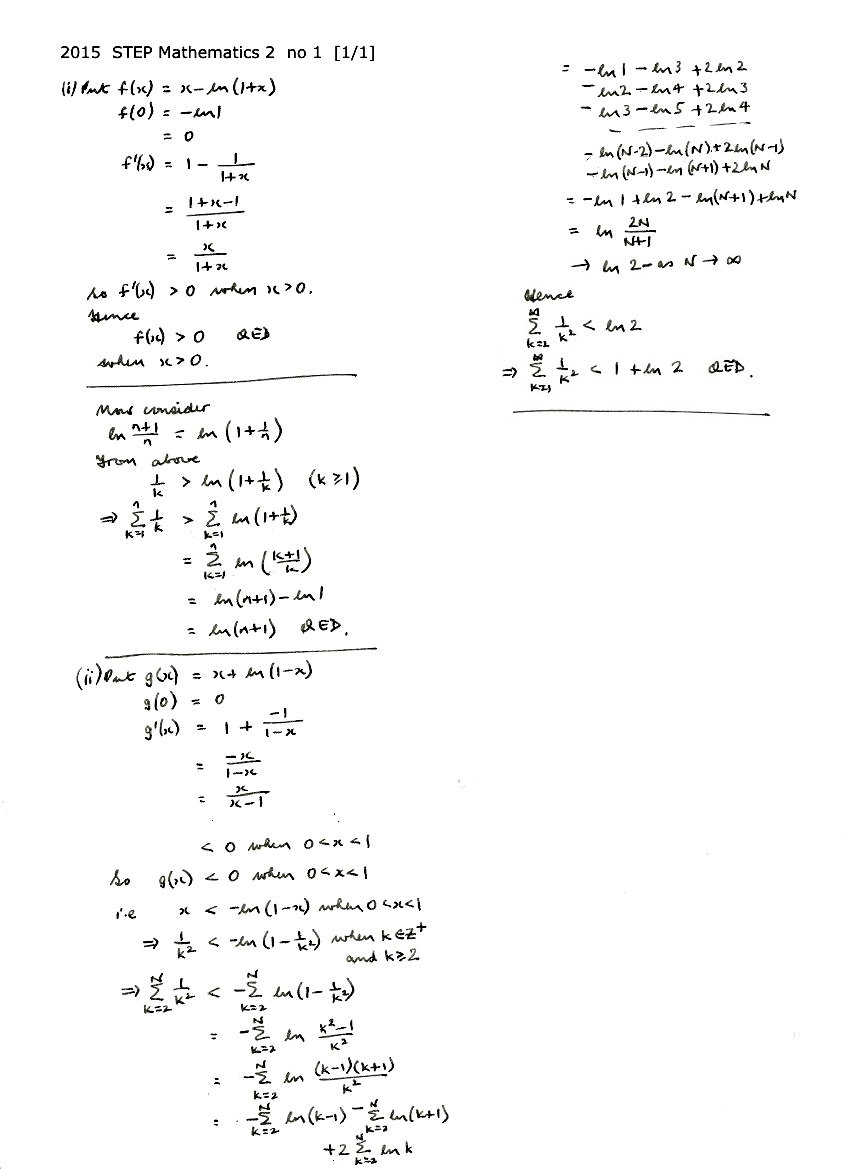 2015 STEP Mathematics 2 no 1 [1/1]
(i) Put f(x) = x - ln(1+x)
f(0) = -ln1
= 0
f'(x) = 1 - 1/(1+x)
= (1+x-1)/(1+x)
= x/(1+x)
So f'(x) > 0 when x > 0.
Hence
f(x) > 0 QED
when x > 0.
Now consider
ln (n+1)/n = ln (1 + 1/n)
From above
1/k > ln (1 + 1/k) (k ≥ 1)
⇒ Σ_{k=1}^{n} 1/k > Σ_{k=1}^{n} ln (1 + 1/k)
= Σ_{k=1}^{n} ln ((k+1)/k)
= ln(n+1) - ln1
= ln(n+1) QED.
(ii) Put g(x) = x + ln(1-x)
g(0) = 0
g'(x) = 1 + -1/(1-x)
= -x/(1-x)
= x/(x-1)
< 0 when 0 < x < 1
So g(x) < 0 when 0 < x < 1
i.e x < -ln(1-x) when 0 < x < 1
⇒ 1/k² < -ln(1 - 1/k²) when k ∈ Z⁺
and k ≥ 2
⇒ Σ_{k=2}^{N} 1/k² < -Σ_{k=2}^{N} ln(1 - 1/k²)
= -Σ_{k=2}^{N} ln (k²-1)/k²
= -Σ_{k=2}^{N} ln (k-1)(k+1)/k²
= -Σ_{k=2}^{N} ln(k-1) - Σ_{k=2}^{N} ln(k+1)
+ 2 Σ_{k=2}^{N} ln k
= -ln1 - ln3 + 2ln2
-ln2 - ln4 + 2ln3
-ln3 - ln5 + 2ln4
- ln(N-2) - ln(N) + 2ln(N-1)
- ln(N-1) - ln(N+1) + 2lnN
= -ln1 + ln2 - ln(N+1) + lnN
= ln 2N/(N+1)
→ ln 2 as N → ∞
Hence
Σ_{k=2}^{∞} 1/k² < ln2
⇒ Σ_{k=1}^{∞} 1/k² < 1 + ln 2 QED.